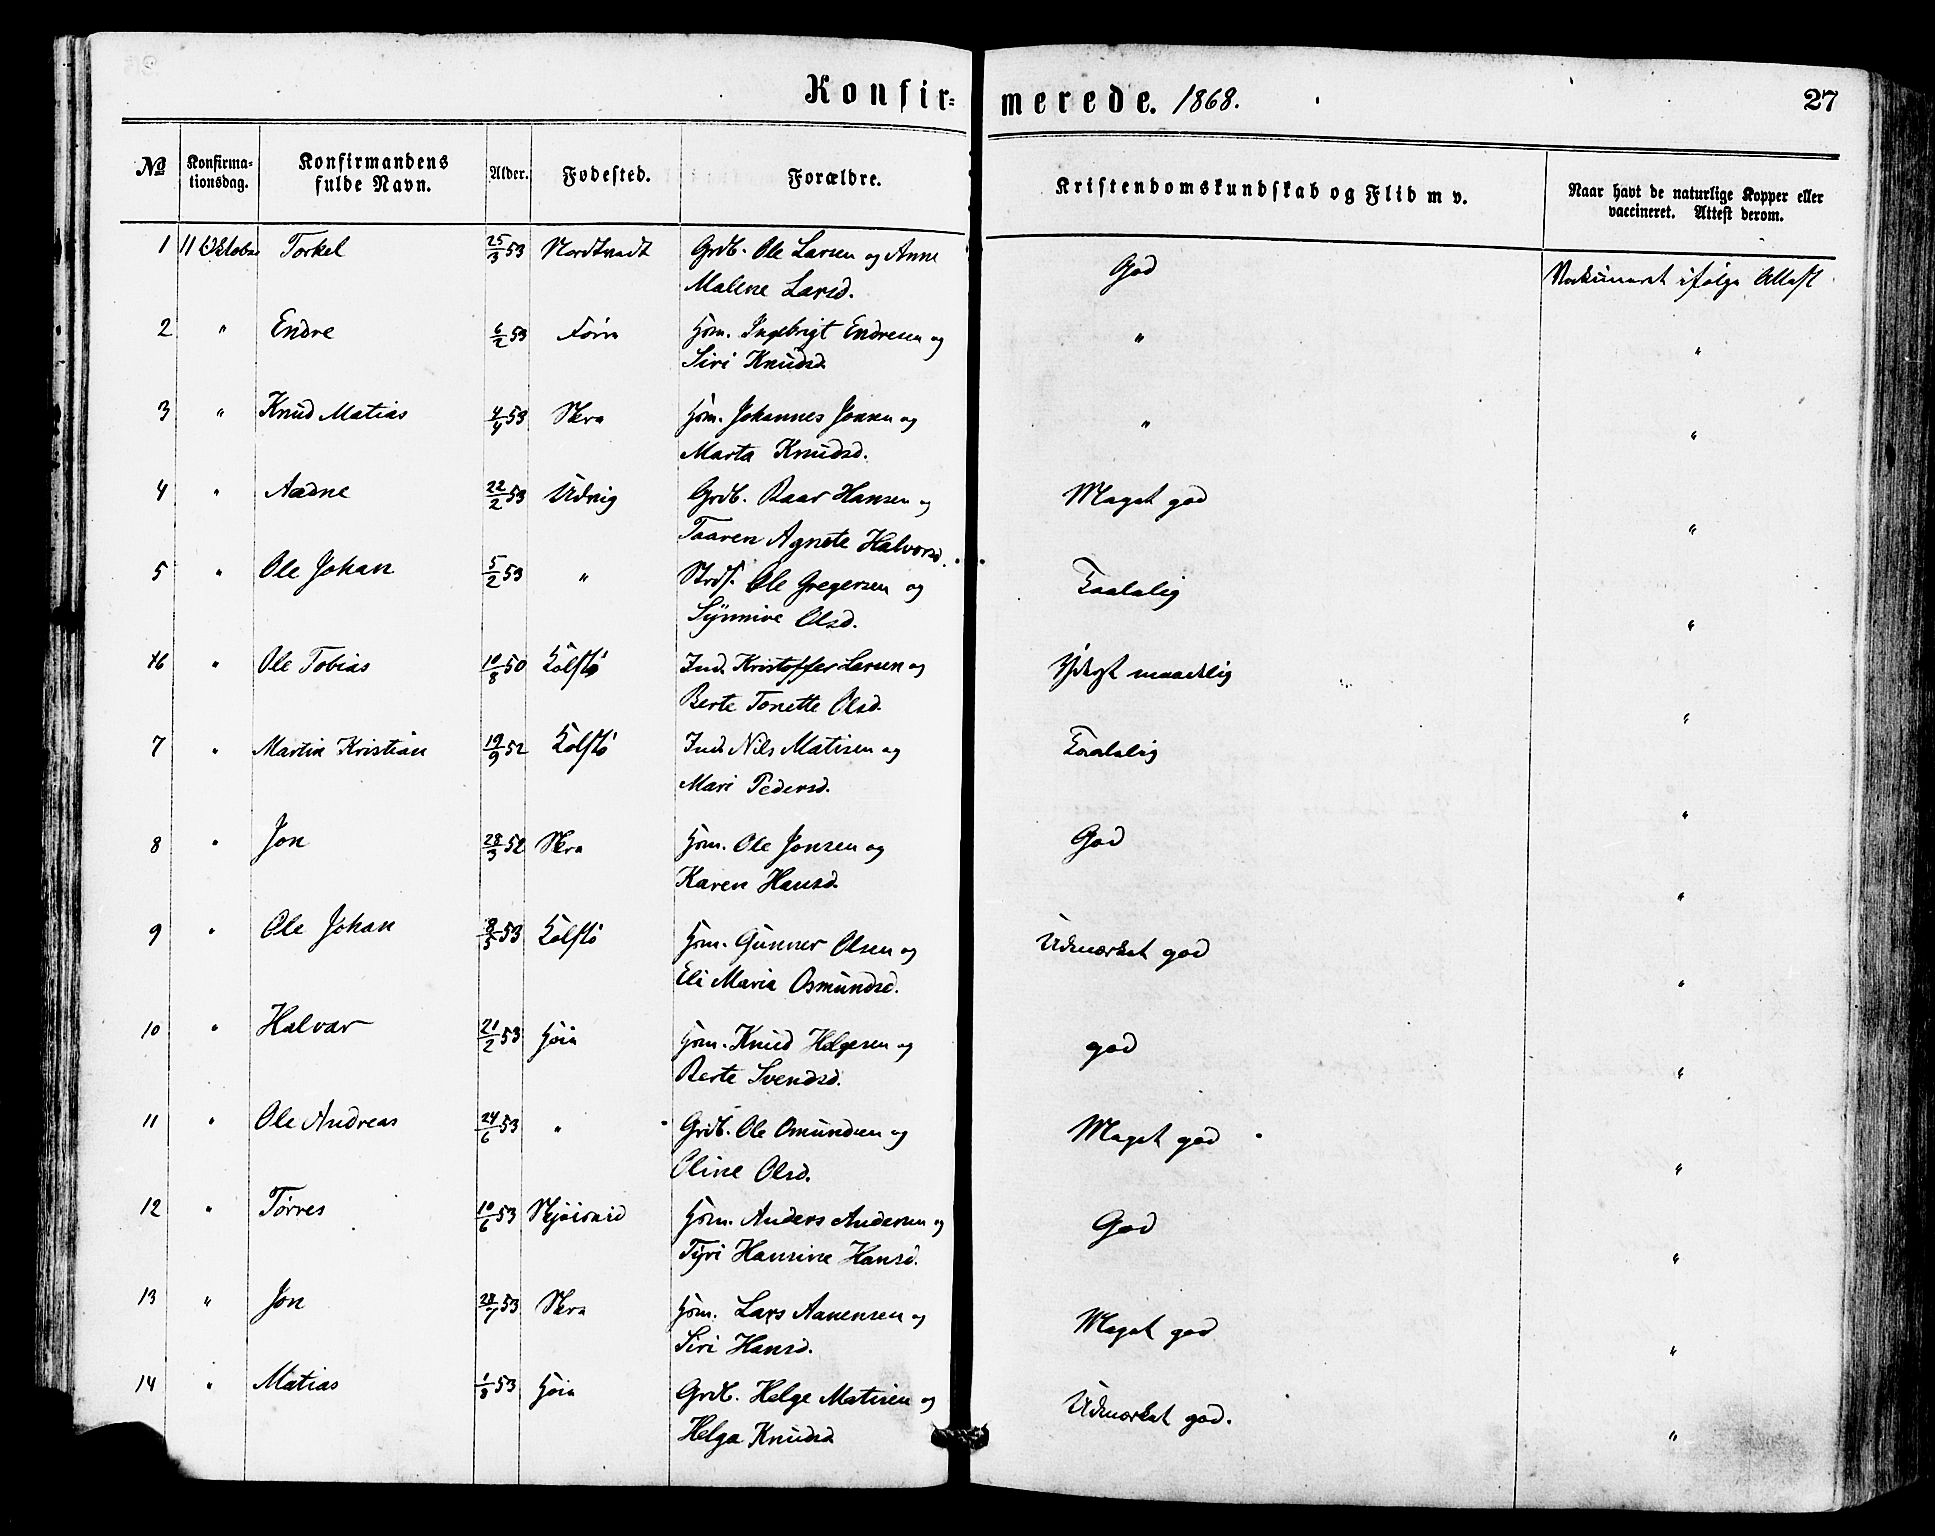 Konfir= merede. 1868. 27
No Konfirma-tionsdag. Konfirmandens fulde Navn. Alder. Fødested. Forældre. Kristendomskundskab og Flid m v. Naar havt de naturlige Kopper eller vaccineret. Attest derom.
1 11 Oktober Torkel 25/3 53 Grdb. Ole Larsen og Anne God Vaksineret ifølge Attest
Malene Larsd.
2 " Endre 6/2 53 Hsm. Ingebrigt Endresen og " "
Siri Knudsd.
3 " Knud Matias 4/4 53 Skra Hsm. Johannes Jonsen og " "
Marta Knudsd.
4 " Aadne 22/2 53 Udvig Grdb. Baar Hansen og Meget god "
Taaren Agnete Halvorsd.
5 " Ole Johan 5/2 53 " Strds. Ole Gregersen og Taalelig "
Synnive Olsd.
6 " Ole Tobias 10/8 50 Kolstø Ind. Kristoffer Larsen og Ydrst maadelig "
Berte Tonette Olsd.
7 " Martin Kristian 19/9 52 Kolstø Ind. Nils Matisen og Taalelig "
Mari Pedersd.
8 " Jon 28/3 52 Skra Hsm. Ole Jonsen og God "
Karen Hansd.
9 " Ole Johan 53 Kolstø Hsm. Gunner Olsen og Udmærket god "
Eli Maria Osmundsd.
10 " Halvar 21/2 53 Høie Hsm. Knud Helgesen og god "
Berte Svendsd.
11 " Ole Andreas 24/6 53 " Grdb. Ole Omundsen og Meget god "
Oline Olsd.
12 " Tørres 10/6 53 Hsm. Anders Andersen og God "
Tyri Hansine Hansd.
13 " Jon 28/7 53 Skra Hsm. Lars Aanensen og Meget god "
Siri Hansd.
14 " Matias 1/8 53 Høie Grdb. Helge Matisen og Udmærket god. "
Helga Knudsd.